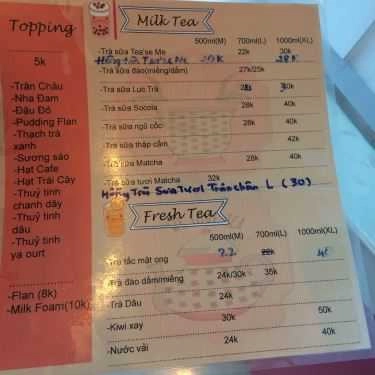 Topping
5k
-Trân Châu
-Nha Đam
-Đậu Đỏ
-Pudding Flan
-Thạch trà
xanh
-Sương sáo
-Hạt Cafe
-Hạt Trái Cây
-Thuỷ tinh
chanh dây
-Thuỷ tinh
dâu
-Thuỷ tinh
ya ourt
-Flan (8k)
-Milk Foam(10k)
Milk Tea
500ml(M) 700ml(L) 1000ml(XL)
-Trà sữa Tea'se Me 22k 30k
Hồng trà Tea'se Me 28K
-Trà sữa đào(miếng/dầm) 27k/25k
-Trà sữa Lục Trà
-Trà sữa Socola 28k 40k
-Trà sữa ngũ cốc 28k 40k
-Trà sữa thập cẩm 42k
-Trà sữa Matcha 28k 40k
-Trà sữa tươi Matcha 32k
Hồng Trà Sữa Tươi Trân châu L (30)
Fresh Tea
500ml(M) 700ml(L) 1000ml(XL)
-Trà tắc mật ong 22 22k
-Trà đào dầm/miếng 24k/30k 35k
-Trà Dâu 24k
-Kiwi xay 30k 50k
-Nước vải 24k 40k